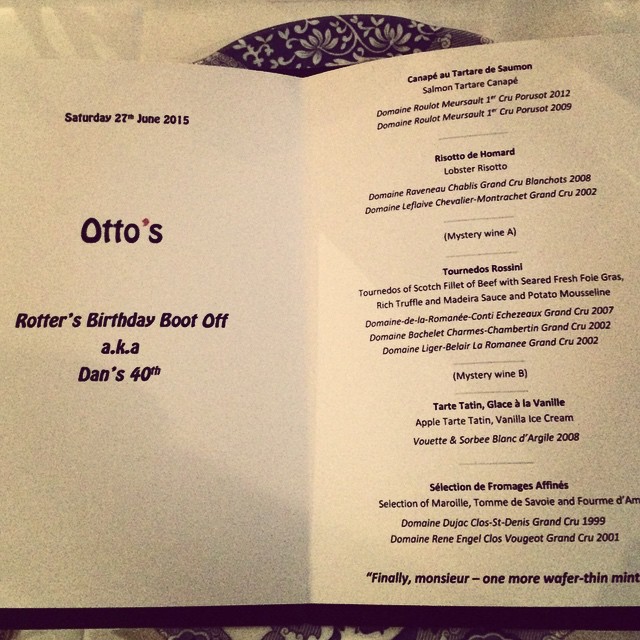 Saturday 27th June 2015
Otto's
Rotter's Birthday Boot Off
a.k.a
Dan's 40th
Canapé au Tartare de Saumon
Salmon Tartare Canapé
Domaine Roulot Meursault 1er Cru Porusot 2012
Domaine Roulot Meursault 1er Cru Porusot 2009
Risotto de Homard
Lobster Risotto
Domaine Raveneau Chablis Grand Cru Blanchots 2008
Domaine Leflaive Chevalier-Montrachet Grand Cru 2002
(Mystery wine A)
Tournedos Rossini
Tournedos of Scotch Fillet of Beef with Seared Fresh Foie Gras,
Rich Truffle and Madeira Sauce and Potato Mousseline
Domaine-de-la-Romanée-Conti Echezeaux Grand Cru 2007
Domaine Bachelet Charmes-Chambertin Grand Cru 2002
Domaine Liger-Belair La Romanee Grand Cru 2002
(Mystery wine B)
Tarte Tatin, Glace à la Vanille
Apple Tarte Tatin, Vanilla Ice Cream
Vouette & Sorbee Blanc d'Argile 2008
Sélection de Fromages Affinés
Selection of Maroille, Tomme de Savoie and Fourme d'Am
Domaine Dujac Clos-St-Denis Grand Cru 1999
Domaine Rene Engel Clos Vougeot Grand Cru 2001
"Finally, monsieur – one more wafer-thin mint